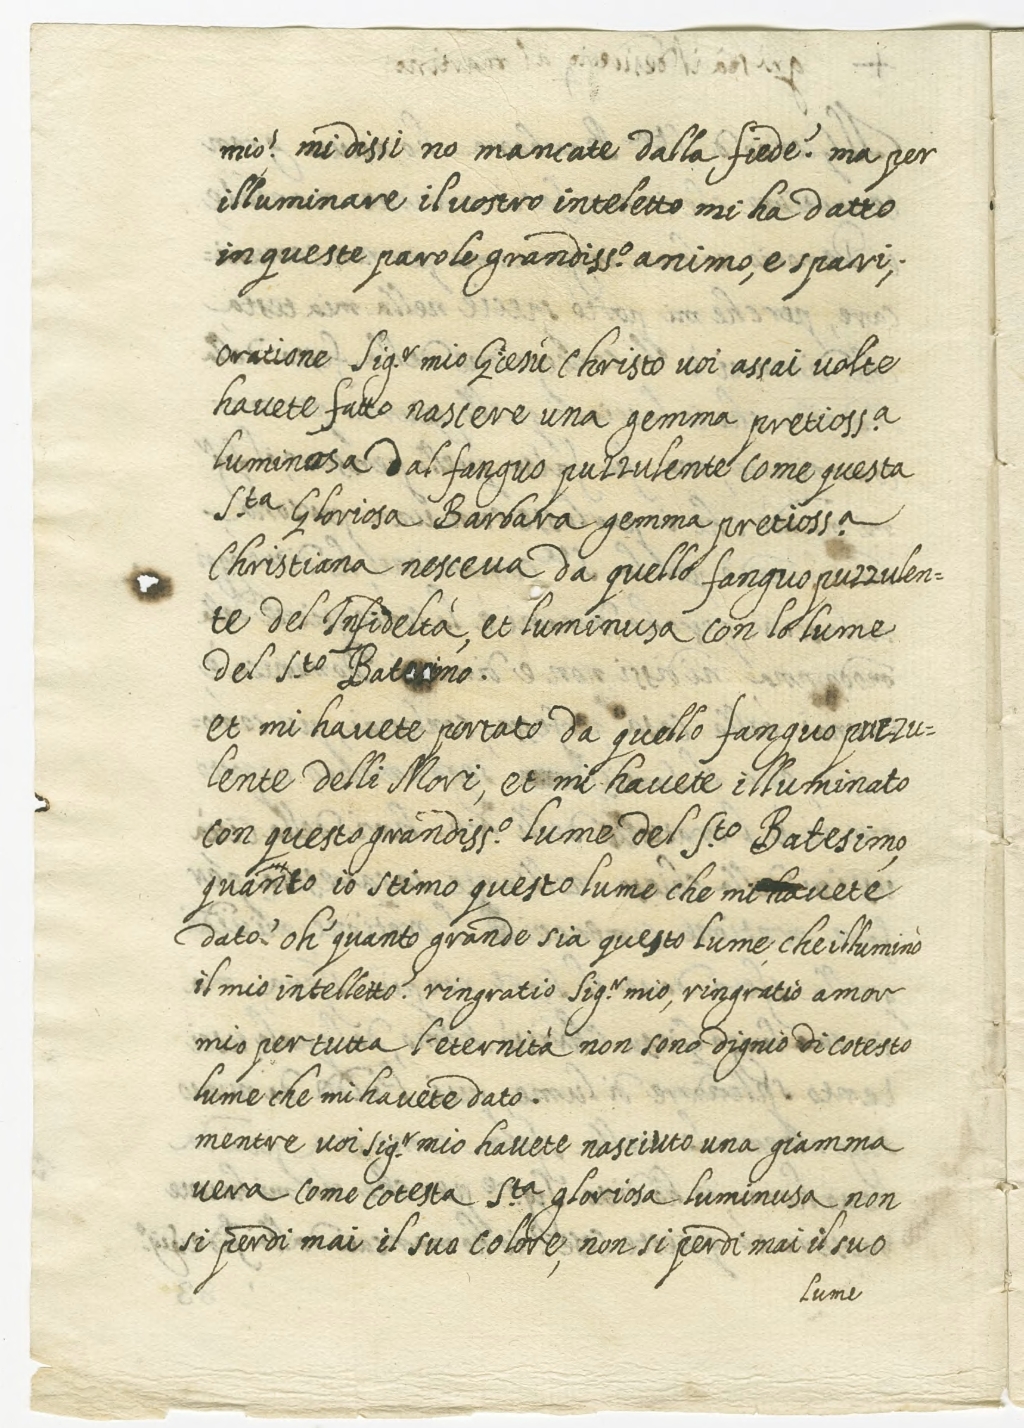 mio! mi dissi no mancate dalla fiede? ma per
illuminare il vostro inteletto mi ha datto
in queste parole grandiss.º animo, e spari;
Oratione Sig.r mio Giesù Christo voi assai volte
havete fatto nascere una gemma pretioss.a
luminosa dal fanguo puzzulente come questa
S.ta Gloriosa Barbara gemma pretioss.a
Christiana nesceva da quello fanguo puzzulen=
te del Infideltà, et luminusa con lo lume
del S.to Batesimo.
et mi havete portato da quello fanguo puzzu=
lente delli Mori, et mi havete illuminato
con questo grandiss.º lume del S.to Batesimo,
quanto io stimo questo lume che mi havete
dato? oh' quanto grande sia questo lume, che illuminò
il mio intelletto? ringratio Sig.r mio, ringratio amor
mio per tutta l'eternità non sono dignio di cotesto
lume che mi havete dato.
mentre voi Sig.r mio havete nasciuto una giamma
vera come cotesta S.ta gloriosa luminusa non
si perdi mai il suo colore, non si perdi mai il suo
lume